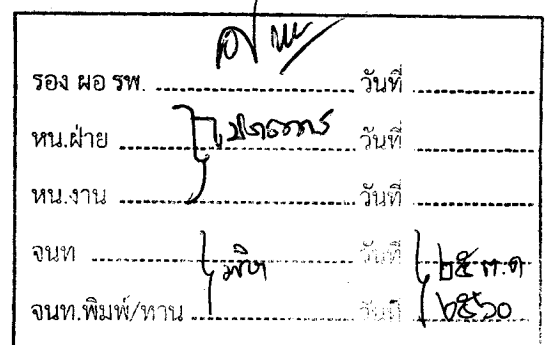 รอง ผอ รพ. .......................... วันที่ ..................
หน.ฝ่าย .......................... วันที่ ..................
หน.งาน .......................... วันที่ ..................
จนท .......................... วันที่ ๒๕ ต.ค
จนท.พิมพ์/ทาน .......................... วันที่ ๒๕๖๐